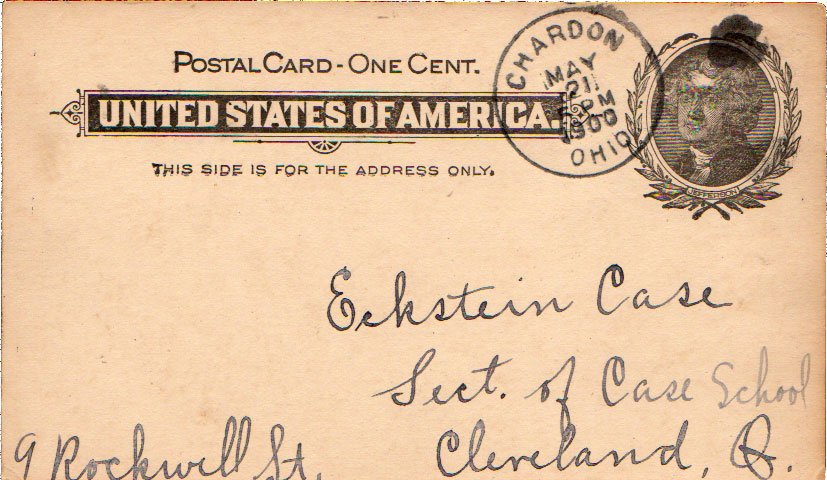 POSTAL CARD - ONE CENT.
UNITED STATES OF AMERICA.
THIS SIDE IS FOR THE ADDRESS ONLY.
CHARDON
MAY
21
PM
1900
OHIO
JEFFERSON
Eckstein Case
Sect. of Case School
Cleveland, O.
9 Rockwell St.